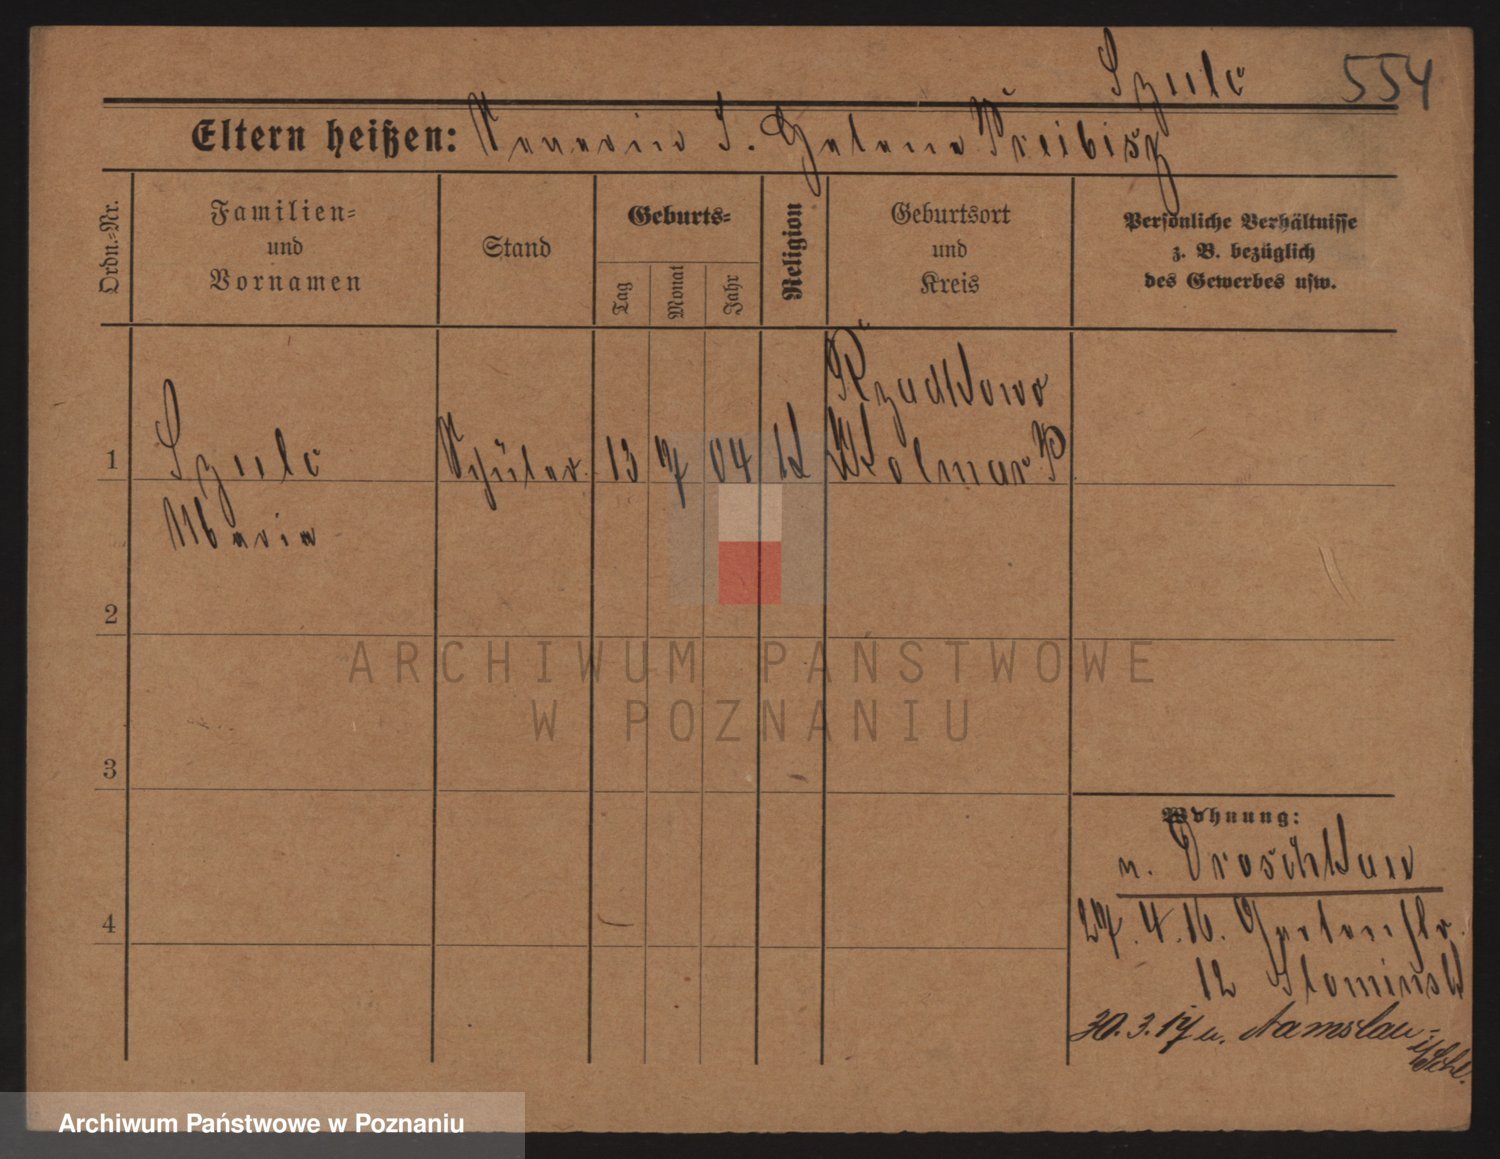 Szulc 554
Eltern heißen: S. Helena Preibisz
Ordn.-Nr.
Familien-
und
Vornamen
Stand
Geburts-
Tag
Monat
Jahr
Religion
Geburtsort
und
Kreis
Persönliche Verhältnisse
z. B. bezüglich
des Gewerbes usw.
1 Szulc Schüler 13 7 04 k Kolmar P
Maria
2
3
4
Wohnung:
n. Droschkau
27. 4. 16. Gartenstr.
12 Slominski
30. 3. 17 n. Namslau
i/Schl.
ARCHIWUM PAŃSTWOWE
W POZNANIU
Archiwum Państwowe w Poznaniu